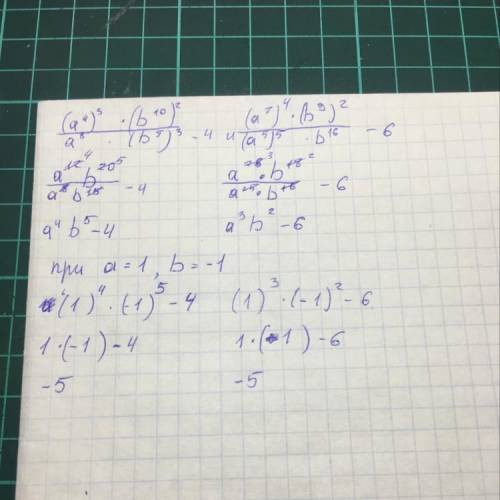 (a⁴)³ · (b¹⁰)² / a⁸ · (b⁵)³ - 4 и (a⁷)⁴ · (b⁹)² / (a⁵)⁵ · b¹⁶ - 6
a¹²⁴ b²⁰⁵ / a⁸ b¹⁵ - 4
a²⁸³ · b¹⁸² / a²⁵ · b¹⁶ - 6
a⁴ b⁵ - 4
a³ b² - 6
при a = 1, b = -1
(1)⁴ · (-1)⁵ - 4
(1)³ · (-1)² - 6
1 · (-1) - 4
1 · (1) - 6
-5
-5